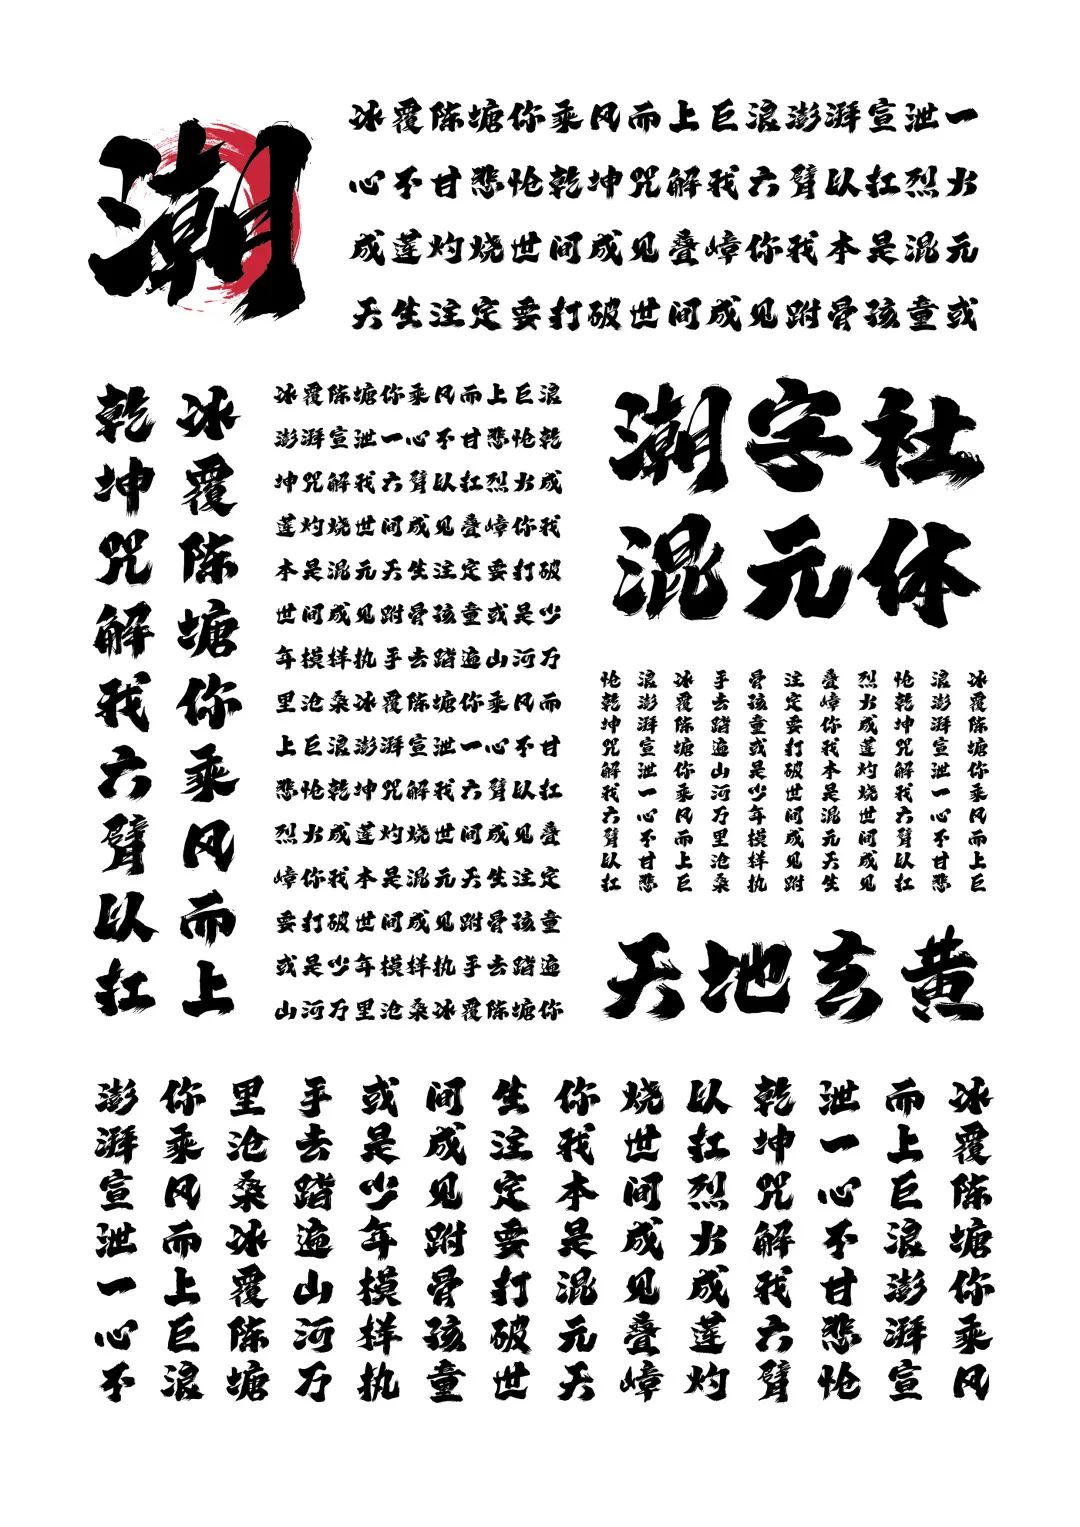 潮
冰覆陈塘你乘风而上巨浪澎湃宣泄一
心不甘悲怆乾坤咒解我六臂以扛烈火
成莲灼烧世间成见叠嶂你我本是混元
天生注定要打破世间成见跗骨孩童或
冰覆陈塘你乘风而上
乾坤咒解我六臂以扛
冰覆陈塘你乘风而上巨浪
澎湃宣泄一心不甘悲怆乾
坤咒解我六臂以扛烈火成
莲灼烧世间成见叠嶂你我
本是混元天生注定要打破
世间成见跗骨孩童或是少
年模样执手去踏遍山河万
里沧桑冰覆陈塘你乘风而
上巨浪澎湃宣泄一心不甘
悲怆乾坤咒解我六臂以扛
烈火成莲灼烧世间成见叠
嶂你我本是混元天生注定
要打破世间成见跗骨孩童
或是少年模样执手去踏遍
山河万里沧桑冰覆陈塘你
潮字社
混元体
冰覆陈塘你乘风而上巨
浪澎湃宣泄一心不甘悲
怆乾坤咒解我六臂以扛
烈火成莲灼烧世间成见
叠嶂你我本是混元天生
注定要打破世间成见跗
骨孩童或是少年模样执
手去踏遍山河万里沧桑
冰覆陈塘你乘风而上巨
浪澎湃宣泄一心不甘悲
怆乾坤咒解我六臂以扛
天地玄黄
冰覆陈塘你乘风
而上巨浪澎湃宣
泄一心不甘悲怆
乾坤咒解我六臂
以扛烈火成莲灼
烧世间成见叠嶂
你我本是混元天
生注定要打破世
间成见跗骨孩童
或是少年模样执
手去踏遍山河万
里沧桑冰覆陈塘
你乘风而上巨浪
澎湃宣泄一心不